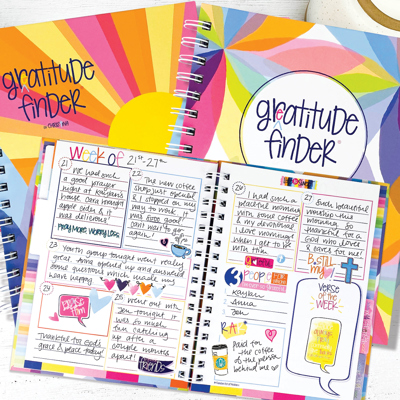 gratitude
finder
gratitude
finder®
Week of 21st-27th
21
We had such
a good prayer
night at
house. Cara brought
apple cider & it
was delicious!
Pray More Worry Less
22
The new coffee
shop just opened
& I stopped on my
way to work. It
was sooo good!
can't wait to go
again!
23
Youth group tonight went really
great. Anna opened up and answered
some questions which made my
heart happy.
24
Thankful for God's
grace & peace today!
25
Went out with
Jen tonight. It
was so much
fun catching
up after a
couple months
apart!
friends
26
I had such a
peaceful morning
with some coffee
& my devotional.
I love mornings
when I get to be
with Him.
27
Such beautiful
worship this
morning. So
thankful for a
God who loves
& cares for me!
BE STILL
my
3
PEOPLE
Anna
Jen
VERSE
OF THE
WEEK
Paid for
the coffee
of the person
behind me